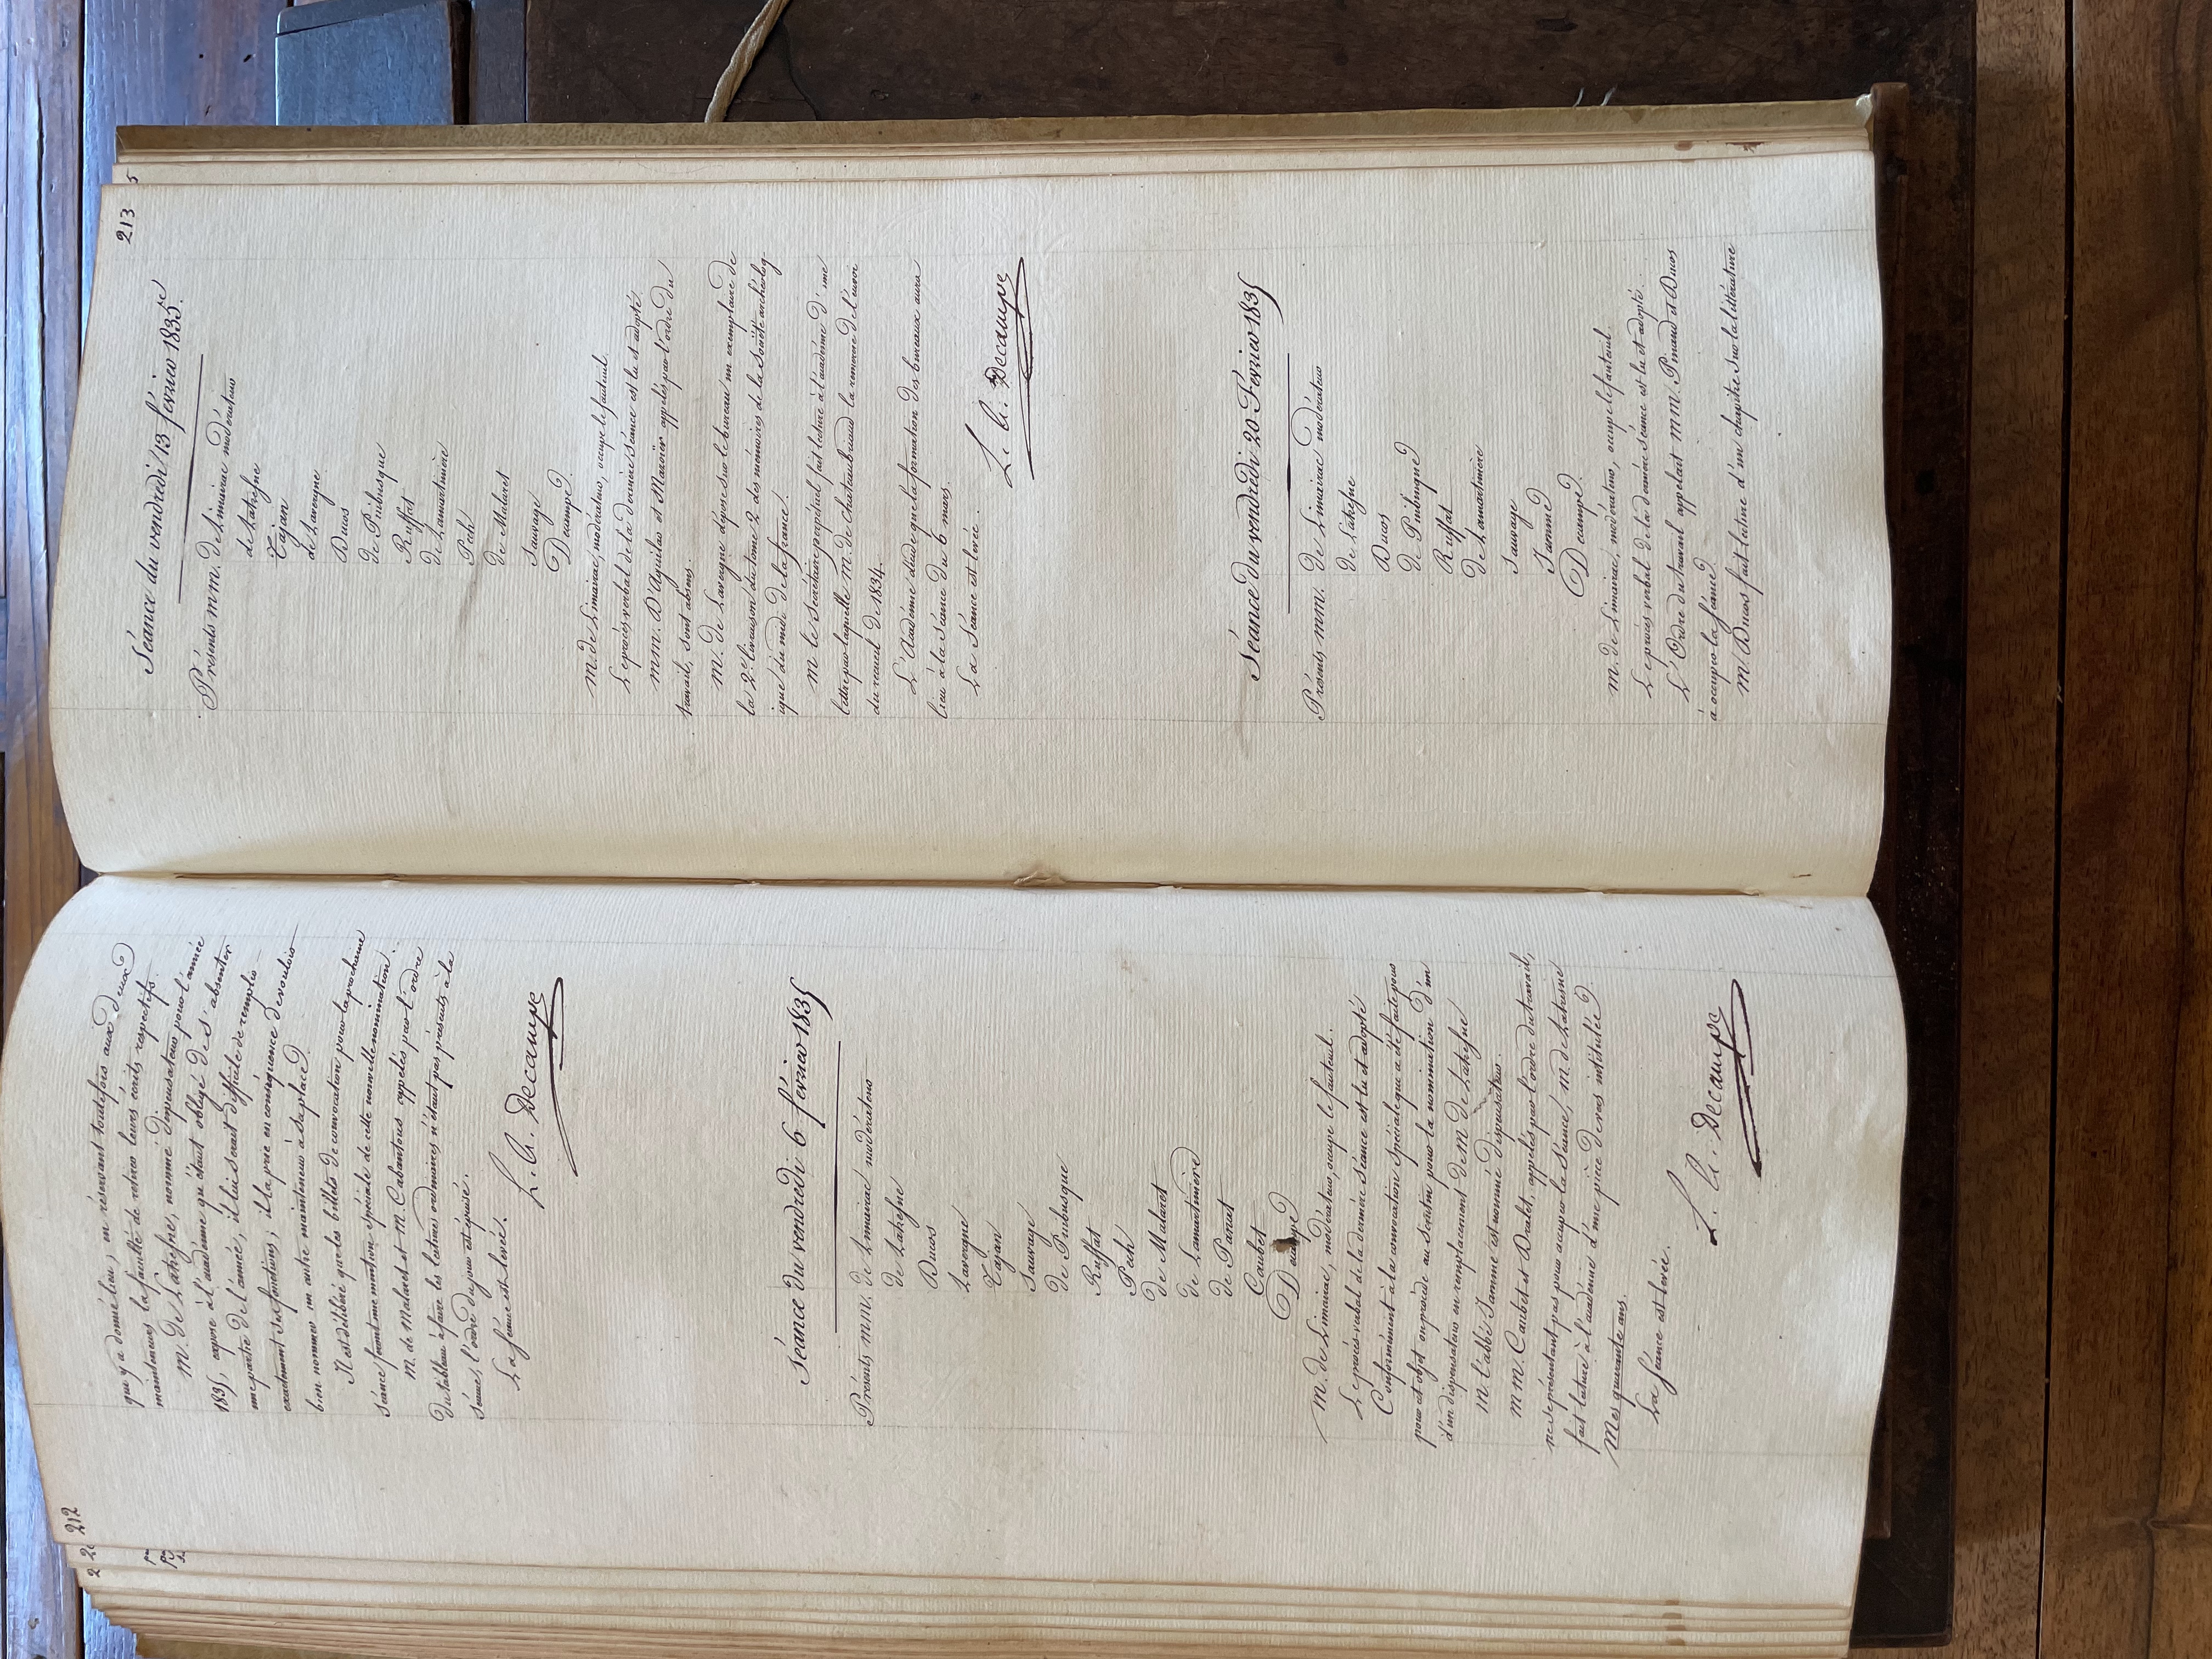 212
que y a donné lieu, en réservant toutefois aux deux
mainteneurs la faculté de retirer leurs écrits respectifs.
M. de Latresne, nommé dispensateur pour l'année
1835, expose à l'académie qu'étant obligé de s'absenter
une partie de l'année, il lui serait difficile de remplir
exactement ses fonctions; il la prie en conséquence de vouloir
bien nommer un autre mainteneur à sa place.
Il est délibéré que les billets de convocation pour la prochaine
séance feront une mention spéciale de cette nouvelle nomination.
M. de Malaret et M. Cabantous appelés par l'ordre
du tableau à faire les lectures ordinaires n'étant pas présents à la
séance, l'ordre du jour est épuisé.
La séance est levée.
Decampe
Séance du vendredi 6 février 1835
Présents mm. de Limairac modérateur
de Latresne
Ducos
Lavergne
Tajan
Sauvage
de Puibusque
Ruffat
Pech
de Malaret
de Lamartinière
de Panat
Caubet
Decampe
M. de Limairac, modérateur, occupe le fauteuil.
Le procès-verbal de la dernière séance est lu et adopté
Conformément à la convocation spéciale qui a été faite pour
pour cet objet on procède au scrutin pour la nomination d'un
d'un dispensateur en remplacement de M. de Latresne
M. l'abbé Jamme est nommé dispensateur.
MM. Caubet et Dralet, appelés par l'ordre du travail,
ne se présentant pas pour occuper la séance, M. de Latresne
fait lecture à l'académie d'une pièce de vers intitulée
Mes quarante ans.
La séance est levée.
Decampe
213
Séance du vendredi 13 février 1835.
Présents mm. de Limairac modérateur
de Latresne
Tajan
de Lavergne
Ducos
de Puibusque
Ruffat
de Lamartinière
Pech
de Malaret
Sauvage
Decampe
M. de Limairac, modérateur, occupe le fauteuil.
Le procès verbal de la dernière séance est lu et adopté.
MM. D'Aguilar et Mazoïer appelés par l'ordre du
travail, sont absens.
M. de Lavergne dépose sur le bureau un exemplaire de
la 2e livraison du tome 2 des mémoires de la société archéolog
ique du midi de la france.
M le secrétaire perpétuel fait lecture à l'académie d'une
lettre par laquelle M. de Chateaubriand la remercie de l'envoi
du recueil de 1834.
L'Académie décide que la formation des bureaux aura
lieu à la séance du 6 mars.
La séance est levée.
Decampe
Séance du vendredi 20 Février 1835
Présents mm. de Limairac modérateur
de Latresne
Ducos
de Puibusque
Ruffat
de Lamartinière
Sauvage
Jamme
Decampe
M. de Limairac, modérateur, occupe le fauteuil.
Le procès verbal de la dernière séance est lu et adopté.
L'Ordre du travail appelait MM. Pinaud et Ducos
à occuper la séance.
M. Ducos fait lecture d'un chapitre sur la littérature